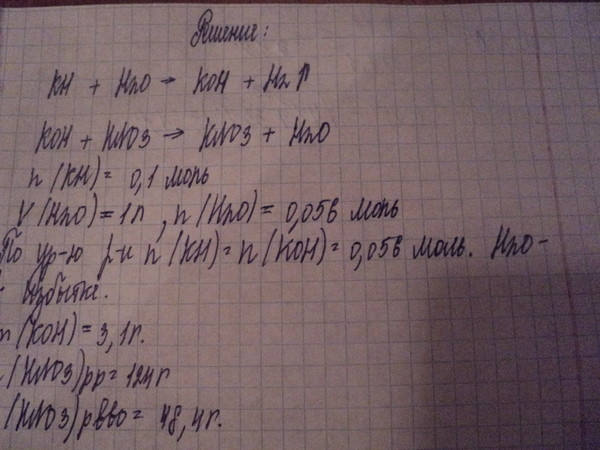 Решение:
KH + H2O → KOH + H2↑
KOH + HNO3 → KNO3 + H2O
n(KH) = 0,1 моль
V(H2O) = 1л, n(H2O) = 0,056 моль
По ур-ю р-и n(KH) = n(KOH) = 0,056 моль. H2O -
избытке.
m(KOH) = 3,1г.
(HNO3)рр = 124г
(HNO3)рвво = 48,4г.